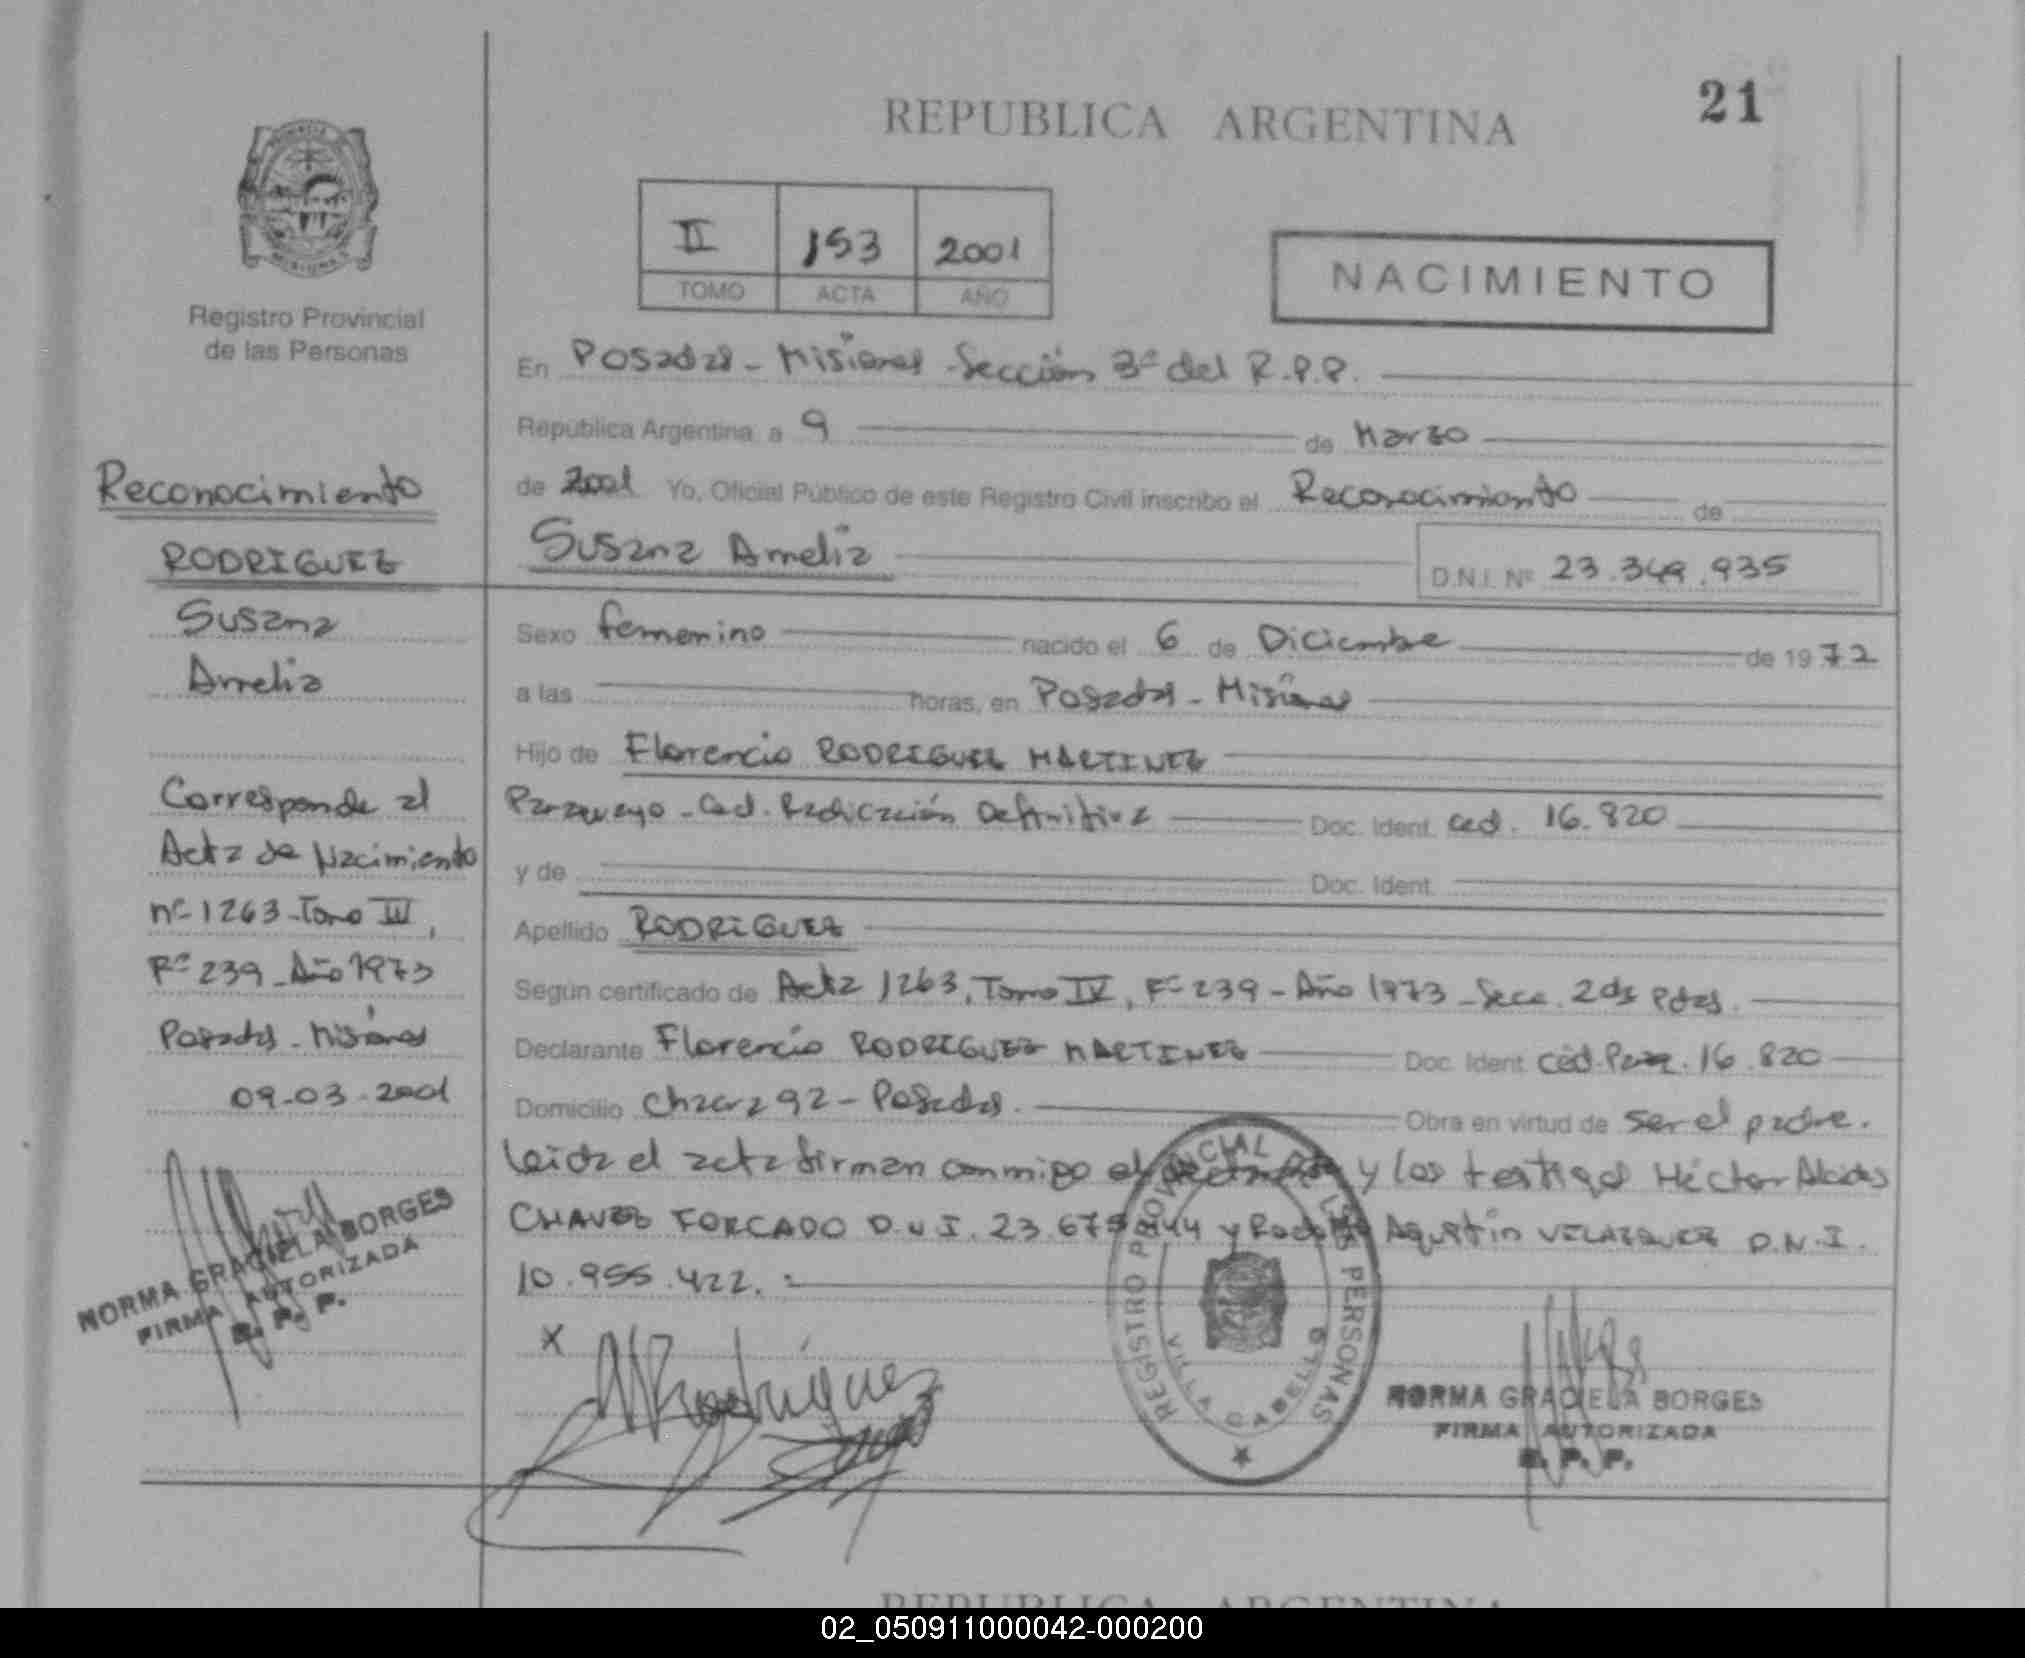 21
REPUBLICA ARGENTINA
II 153 2001
TOMO ACTA AÑO
NACIMIENTO
Registro Provincial
de las Personas
Reconocimiento
RODRIGUEZ
Susana
Amelia
Corresponde al
Acta de Nacimiento
nº 1263 - Tomo IV,
Fº 239 - Año 1973
Posadas - Misiones
09-03-2001
NORMA GRACIELA BORGES
FIRMA AUTORIZADA
R. P. P.
En Posadas - Misiones - Sección 3ª del R.P.P.
República Argentina a 9 de Marzo
de 2001 Yo, Oficial Público de este Registro Civil inscribo el Reconocimiento de
Susana Amelia D.N.I. Nº 23.349.935
Sexo femenino nacido el 6 de Diciembre de 1972
a las horas, en Posadas - Misiones
Hijo de Florencio RODRIGUEZ MARTINEZ
Paraguayo - Ced. Radicación Definitiva Doc. Ident. Ced. 16.820
y de Doc. Ident.
Apellido RODRIGUEZ
Según certificado de Acta 1263, Tomo IV, Fº 239 - Año 1973 - Secc. 2da Pdas.
Declarante Florencio RODRIGUEZ MARTINEZ Doc. Ident. céd. Par. 16.820
Domicilio Chacra 92 - Posadas. Obra en virtud de ser el padre.
Leida el acta firman conmigo el y los testigos Héctor Alcides
CHAVEZ FORCADO D.N.I. 23.675.444 y Agustín VELAZQUEZ D.N.I.
10.955.422.=
X
Rodríguez
REGISTRO PROVINCIAL DE LAS PERSONAS
VILLA CABELLO
NORMA GRACIELA BORGES
FIRMA AUTORIZADA
R. P. P.
REPUBLICA ARGENTINA
02_050911000042-000200